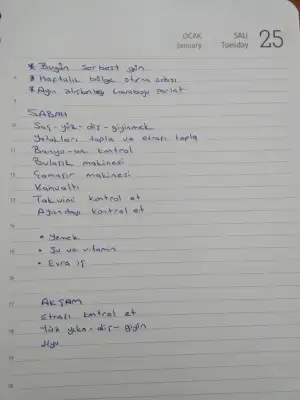 OCAK
January
SALI
Tuesday
25
* Bugün serbest gün
* Haftalık bölge oturma odası
* Ayın alışkanlığı lavaboyu parlat
SABAH
Saç - yüz - diş - giyinmek
Yatakları topla ve etrafı topla
Banyo - wc kontrol
Bulaşık makinesi
Çamaşır makinesi
Kahvaltı
Takvimi kontrol et
Ajandayı kontrol et
• Yemek
• Su ve vitamin
• Evra iş
AKŞAM
Etrafı kontrol et
Yüz yıka - diş - giyin
Uyu